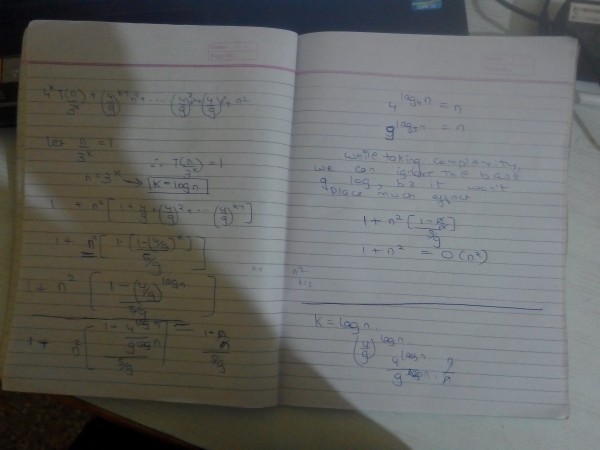 4^x T(n/3^x) + (4/9)^(x-1) n^2 + ... (4/9)^2 + (4/9) + n^2
Let n/3^x = 1
∴ T(n/3^x) = 1
n = 3^x → K = log n
1 + n^2 [1 + 4/9 + (4/9)^2 + ... (4/9)^(x-1)]
1 + n^2 [1 · [1 - (4/9)^x] / 5/9]
1 + n^2 [1 - (4/9)^(log n) / 5/9]
1 - 4^(log n) / 9^(log n)
5/9
4^(log_4 n) = n
9^(log_9 n) = n
while taking complexity,
we can ignore the base
of log, bz it won't
place much effect
1 + n^2 [1 - / 5/9]
1 + n^2 = O(n^2)
n^2
K = log n
(4/9)^(log n)
4^(log n) / 9^(log n) n/n